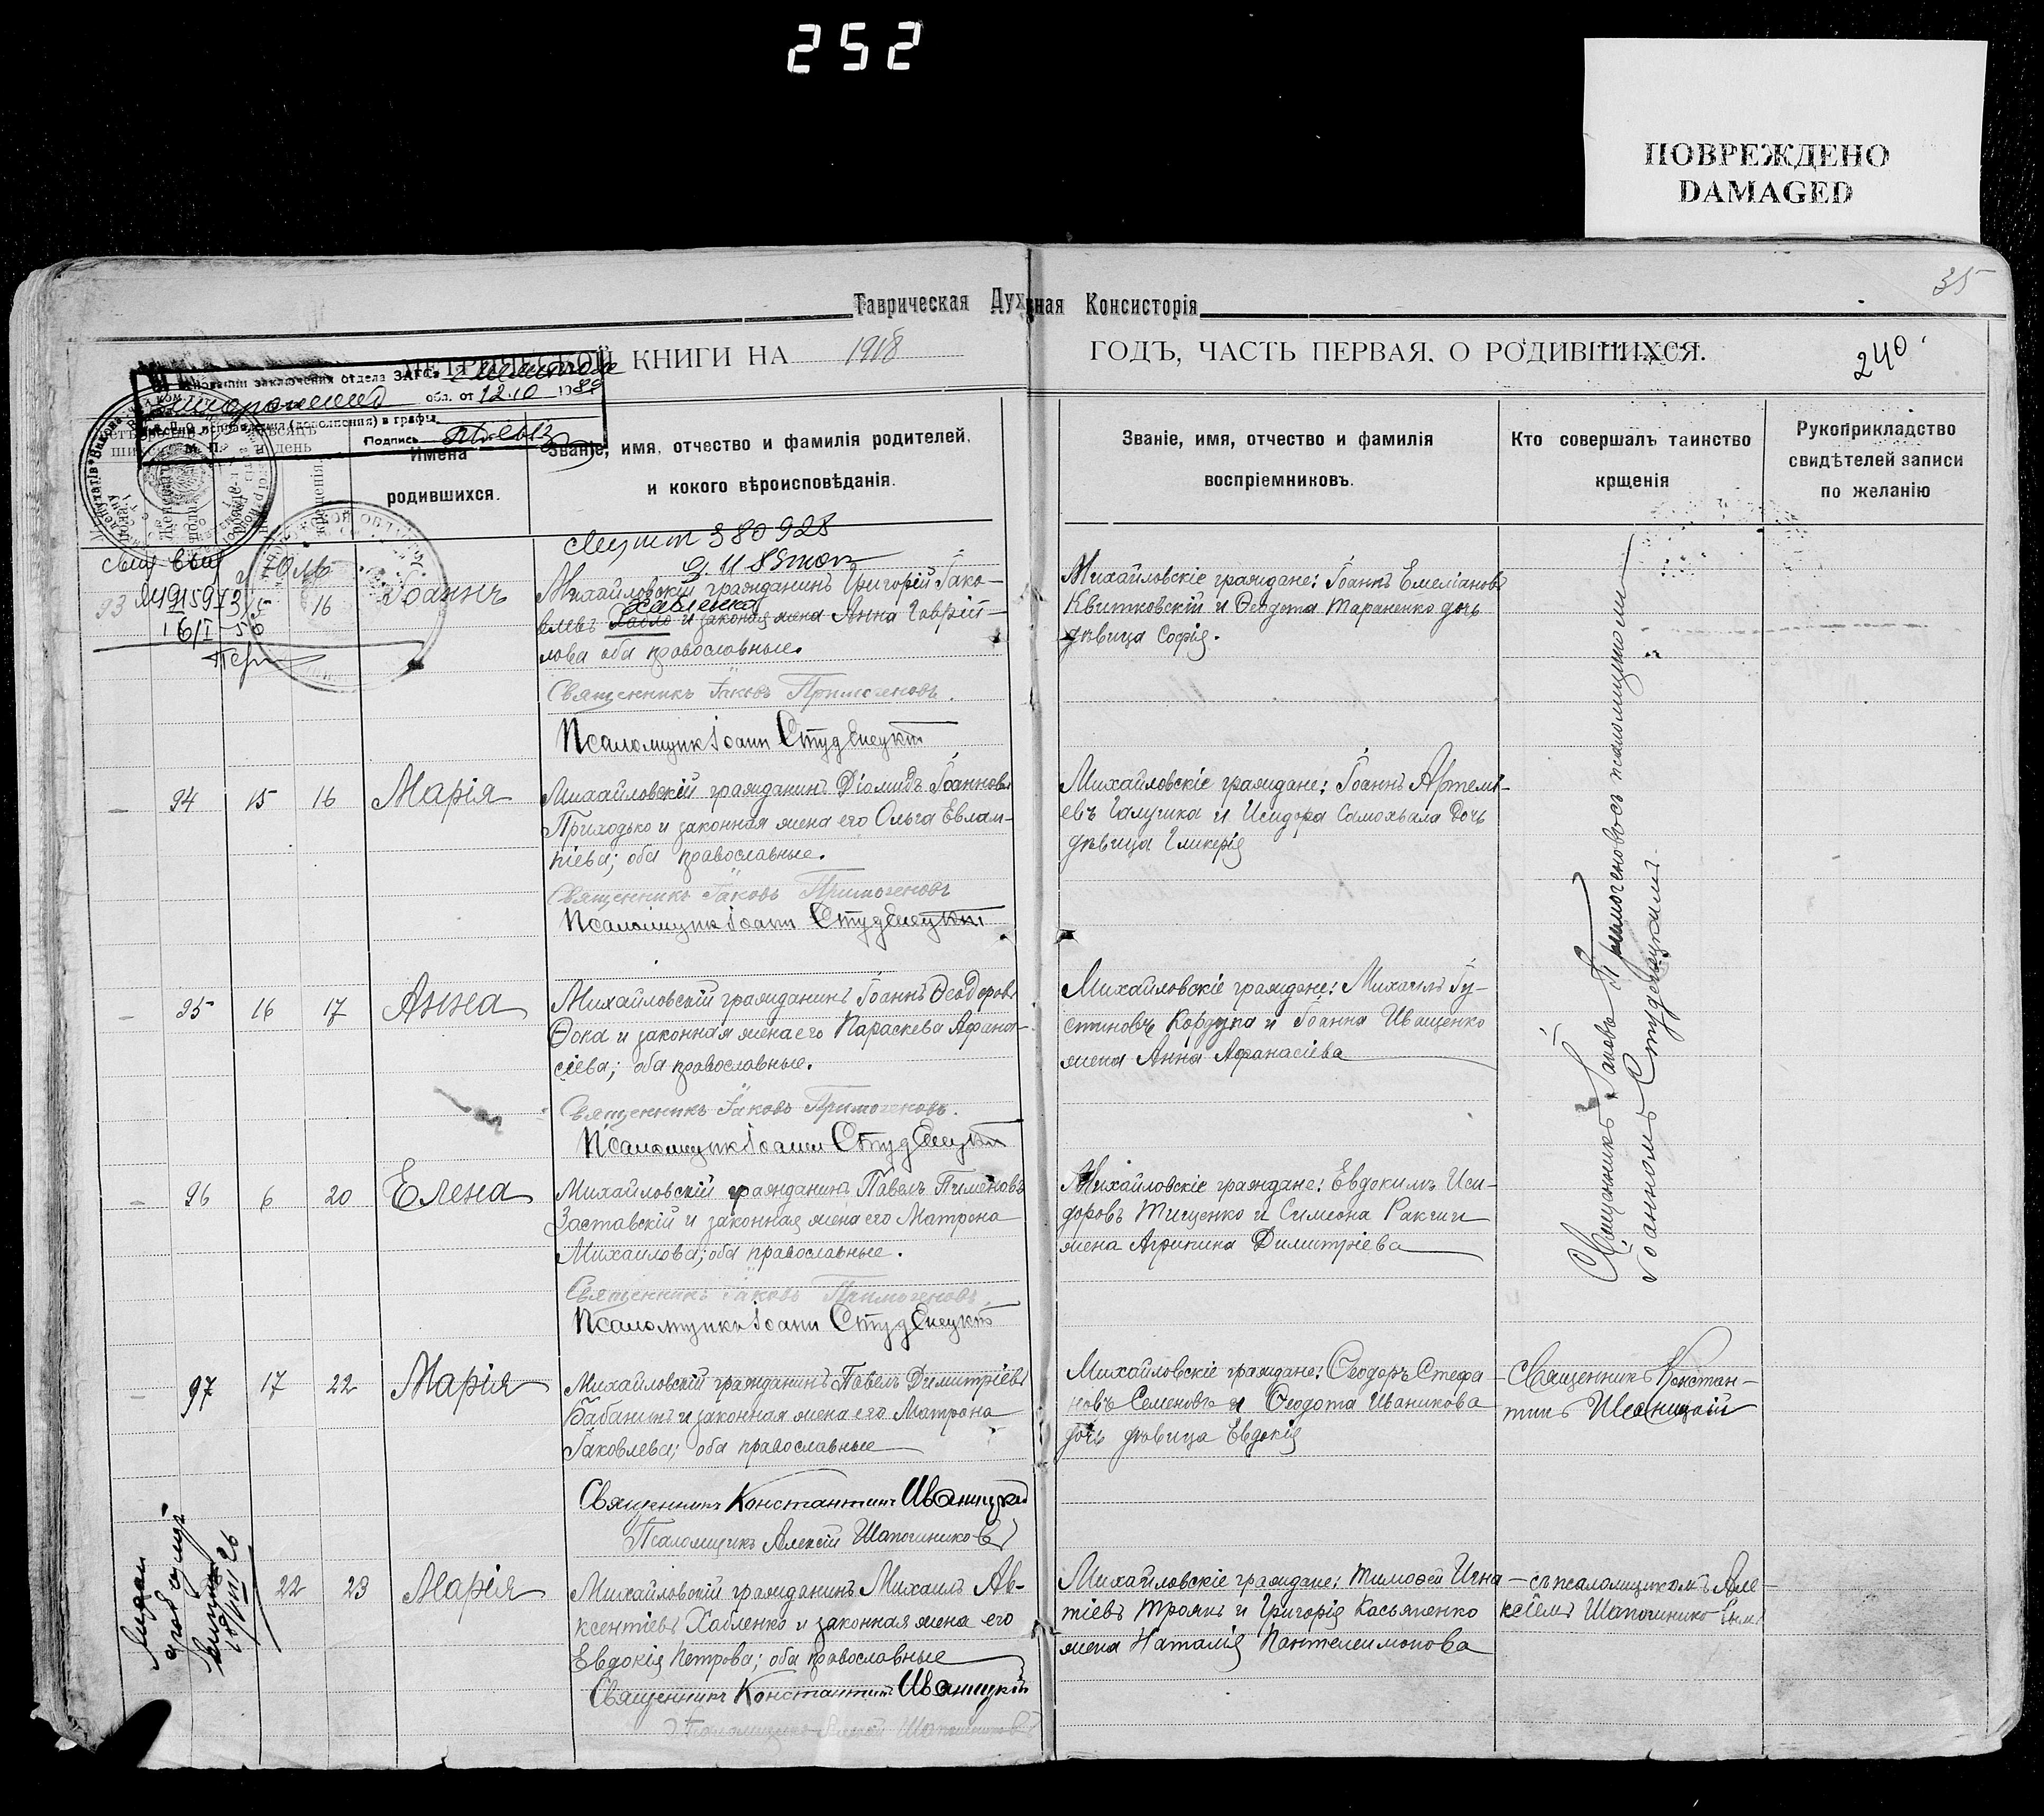 252
ПОВРЕЖДЕНО
DAMAGED
35
Таврическая Духовная Консисторія
МЕТРИЧЕСКОЙ КНИГИ НА 1918 ГОДЪ, ЧАСТЬ ПЕРВАЯ. О РОДИВШИХСЯ.
240
заключения отдела ЗАГСа
обл. от 12.10 1989
исправления (дополнения) в графы
Подпись
М. П.
Имена
родившихся.
Званіе, имя, отчество и фамилія родителей,
и кокого вѣроисповѣданія.
Званіе, имя, отчество и фамилія
воспріемниковъ.
Кто совершалъ таинство
крщенія
Рукоприкладство
свидѣтелей записи
по желанію
380928
93 15 16 Іоаннъ
Михайловскій гражданинъ Григорій Іако-
влевъ Хабло и законая жена Анна Гавріи-
Хабленко
лова оба православные.
Священникъ Іаковъ Примогеновъ.
Псаломщик Іоанн Студенецкій
Михайловскіе граждане: Іоаннъ Емеліановъ
Квитковскій и Ѳеодота Тараненко дочь
дѣвица Софія.
94 15 16 Марія
Михайловскій гражданинъ Діомидъ Іоанновъ
Приходько и законная жена его Ольга Евлам-
піева; оба православные.
Священникъ Іаковъ Примогеновъ
Псаломщик Іоанн Студенецкій
Михайловскіе граждане: Іоаннъ Артемі-
евъ Галушка и Исидора Самохвала дочь
дѣвица Гликерія
95 16 17 Анна
Михайловскій гражданинъ Іоаннъ Ѳеодоровъ
Ѳока и законная жена его Параскева Афана-
сіева; оба православные.
Священникъ Іаковъ Примогеновъ.
Псаломщик Іоанн Студенецкій
Михайловскіе граждане: Михаилъ Іу-
стиновъ Кордупа и Іоанна Иващенко
жена Анна Афанасіева
96 6 20 Елена
Михайловскій гражданинъ Павелъ Пименовъ
Заставскій и законная жена его Матрона
Михаилова; оба православные.
Священникъ Іаковъ Примогеновъ.
Псаломщикъ Іоанн Студенецкій
Михайловскіе граждане: Евдокимъ Иси-
доровъ Тищенко и Симеона Ракши
жена Агрипина Димитріева
Священникъ Іаковъ Примогеновъ съ псаломщикомъ
Іоанномъ Студенецкимъ.
97 17 22 Марія
Михайловскій гражданинъ Павелъ Димитріевъ
Бабанинъ и законная жена его Матрона
Іаковлева; оба православные
Священникъ Константинъ Иваницкій
Псаломщикъ Алексій Шапошниковъ
Михайловскіе граждане: Ѳеодоръ Стефа-
новъ Семеновъ и Ѳеодота Иваникова
дочь дѣвица Евдокія
Священникъ Констан-
тинъ Иваницкій
22 23 Марія
Михайловскій гражданинъ Михаилъ Ав-
ксентіевъ Хабленко и законная жена его
Евдокія Петрова; оба православные
Священникъ Константинъ Иваницкій
Псаломщикъ Алексій Шапошниковъ
Михайловскіе граждане: Тимофей Игна-
тіевъ Троянъ и Григорія Касьяненко
жена Наталія Пантелеимонова
съ псаломщикомъ Але-
ксіемъ Шапошниковымъ